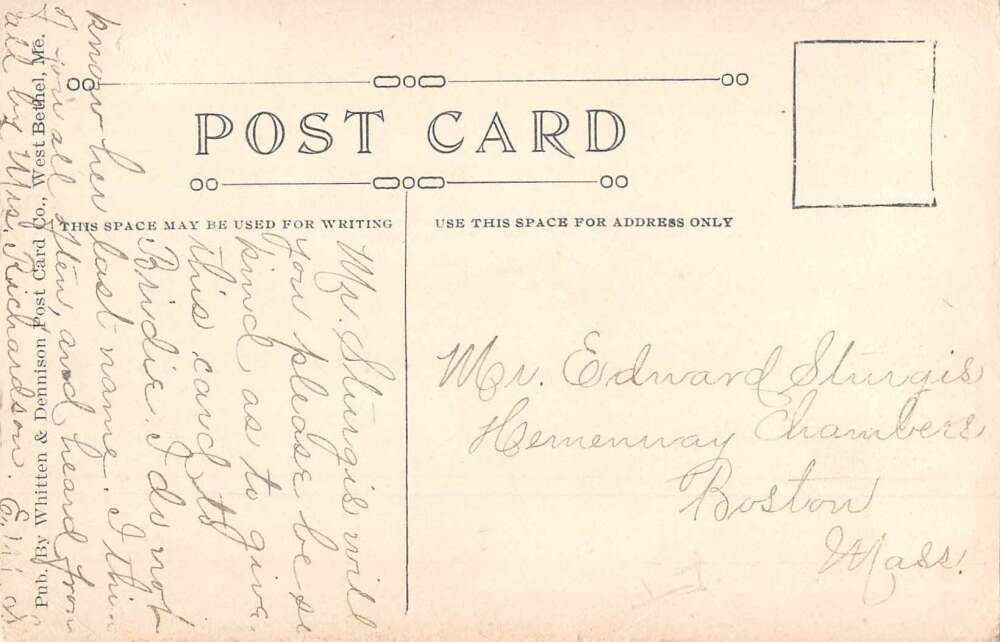 POST CARD
THIS SPACE MAY BE USED FOR WRITING
USE THIS SPACE FOR ADDRESS ONLY
Mr. Sturgis will
you please be so
kind as to give
this card to
Bridie. I do not
know her last name. I thin
of you all often, and heard from
all by Mrs. Richardson.
Mr. Edward Sturgis
Hemenway Chambers
Boston
Mass.
Pub. By Whitten & Dennison Post Card Co., West Bethel, Me.